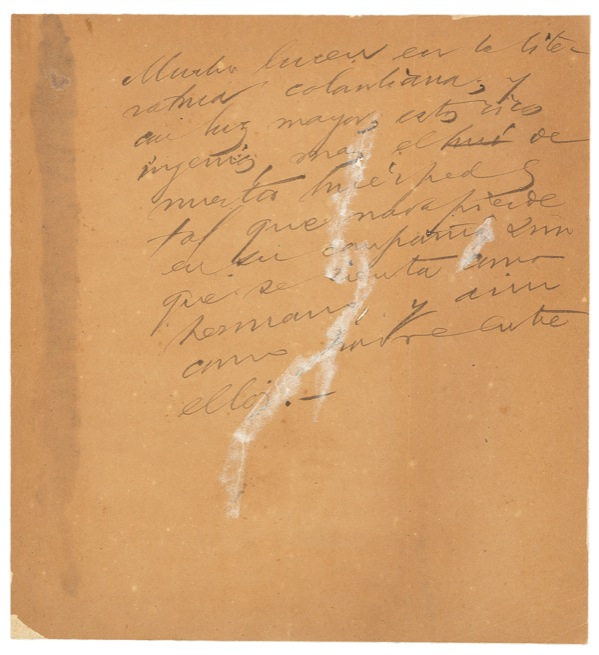 Mucho lucen en la lite-
ratura colombiana, y
con luz mayor, estos ricos
ingenios, mas el de
nuestro huésped es
tal que nada pierde
en su compañía sino
que se sienta como
hermano, y aun
como padre entre
ellos.—